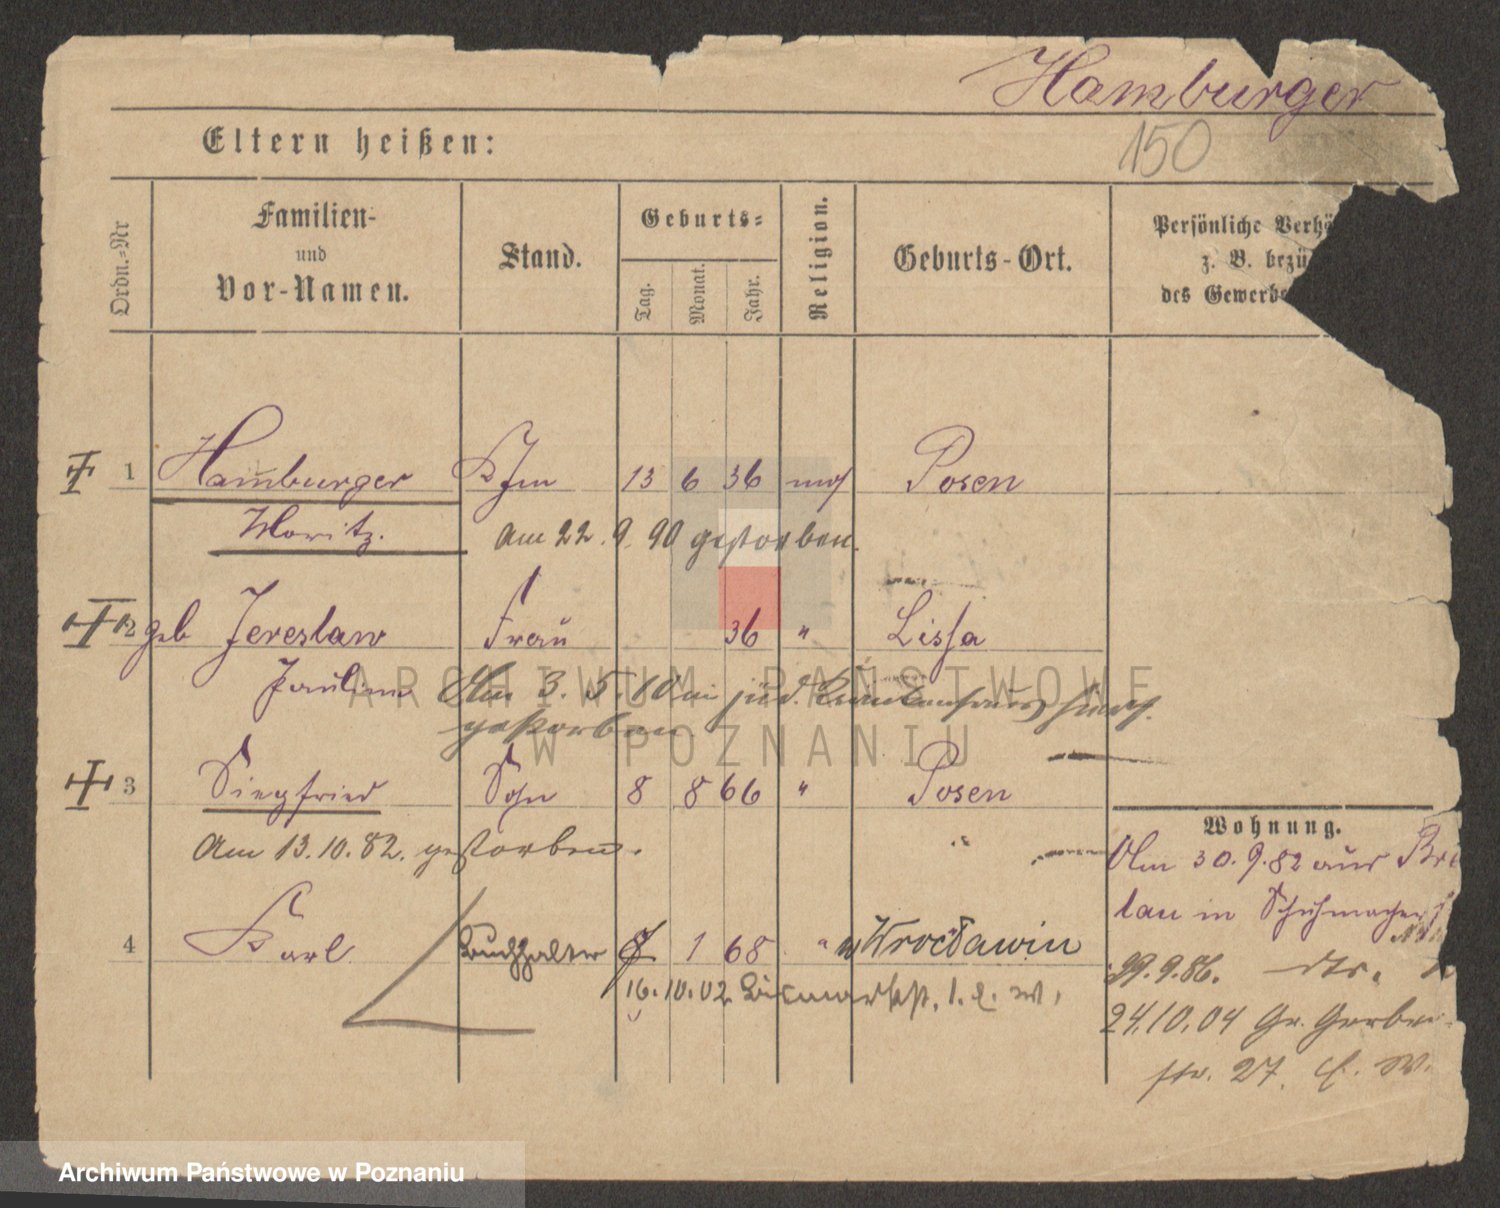 Hamburger
Eltern heißen:
150
Ordn.-Nr
Familien-
und
Vor-Namen.
Stand.
Geburts-
Tag.
Monat.
Jahr.
Religion.
Geburts-Ort.
Persönliche Verhä
z. B. bezü
des Gewerbe
1 Hamburger Kfm 13 6 36 mos Posen
Moritz.
Am 22. 9. 90 gestorben.
2 geb Jereslaw Frau 36 " Lissa
Pauline Am 3. 5. 10 im jüd. Krankenhaus
gestorben
3 Siegfried Sohn 8 8 66 " Posen
Am 13. 10. 82. gestorben.
Wohnung.
Am 30. 9. 82 aus Bre
lau in Schuhmacher
4 Karl Buchhalter 8 1 68 "
29. 9. 86. dto.
16. 10. 02 Bismarckst. 1. b. W.
24.10.04 Gr. Gerber
str. 27.
ARCHIWUM PAŃSTWOWE
W POZNANIU
Archiwum Państwowe w Poznaniu